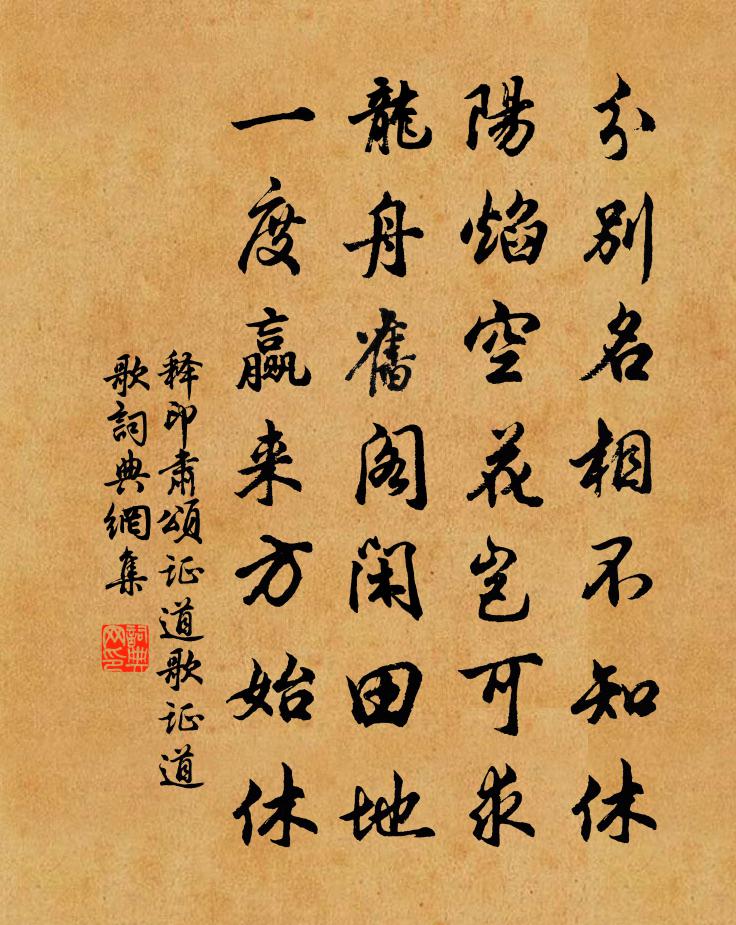 分別名相不知休
陽焰空花豈可求
龍舟舊閣閑田地
一度贏来方始休
释印肃頌证道歌证道
歌詞典網集
詞典网印